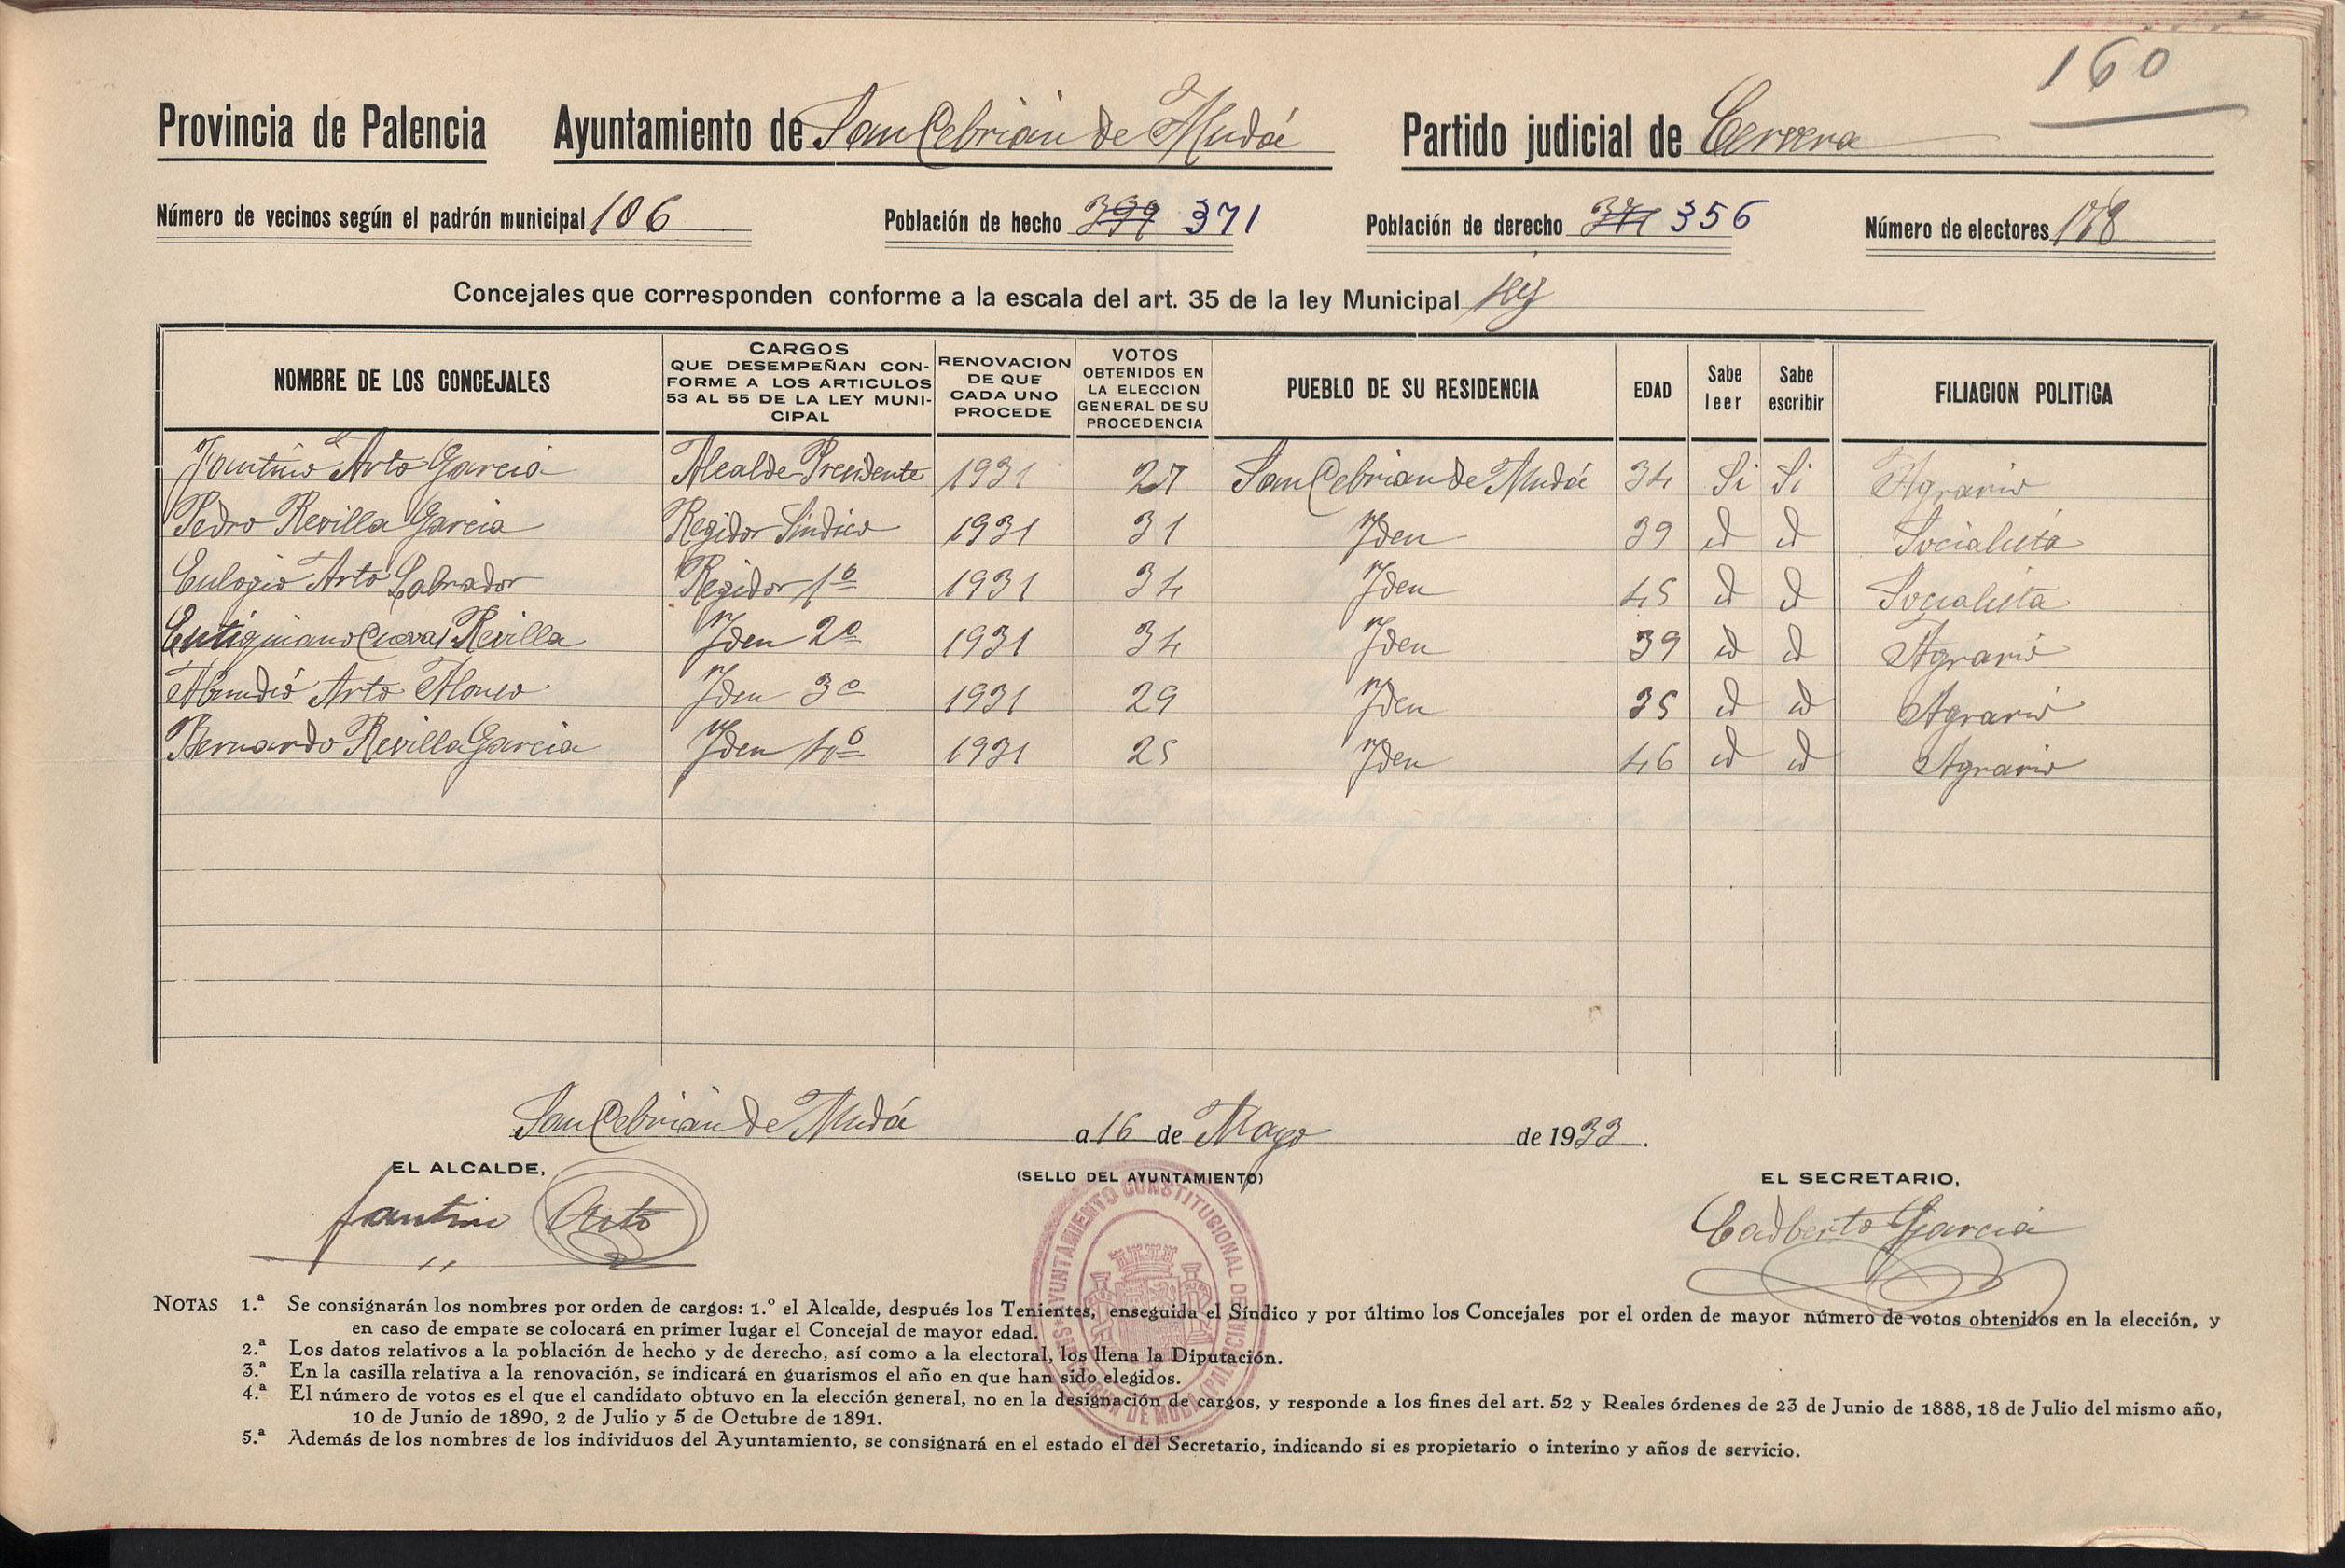 160
Provincia de Palencia Ayuntamiento de San Cebrián de Mudá Partido judicial de Cervera
Número de vecinos según el padrón municipal 106 Población de hecho 399 371 Población de derecho 371 356 Número de electores 178
Concejales que corresponden conforme a la escala del art. 35 de la ley Municipal
NOMBRE DE LOS CONCEJALES CARGOS QUE DESEMPEÑAN CONFORME A LOS ARTICULOS 53 AL 55 DE LA LEY MUNICIPAL RENOVACION DE QUE CADA UNO PROCEDE VOTOS OBTENIDOS EN LA ELECCION GENERAL DE SU PROCEDENCIA PUEBLO DE SU RESIDENCIA EDAD Sabe leer Sabe escribir FILIACION POLITICA
Fantino Arto García Alcalde-Presidente 1931 27 San Cebrian de Mudá 34 Si Si Agrario
Pedro Revilla Garcia Regidor Sindico 1931 31 Iden 39 id id Socialista
Eulogio Arto Labrador Regidor 1º 1931 34 Iden 45 id id Socialista
Eutiquiano Cuevas Revilla Iden 2º 1931 34 Iden 39 id id Agrario
Abundio Arto Alonso Iden 3º 1931 29 Iden 35 id id Agrario
Bernardo Revilla Garcia Iden 4º 1931 25 Iden 46 id id Agrario
San Cebrián de Mudá a 16 de Mayo de 1933.
EL ALCALDE, (SELLO DEL AYUNTAMIENTO) EL SECRETARIO,
Fantino Arto Edilberto García
AYUNTAMIENTO CONSTITUCIONAL DE SAN CEBRIÁN DE MUDÁ (PALENCIA)
NOTAS 1.ª Se consignarán los nombres por orden de cargos: 1.º el Alcalde, después los Tenientes, enseguida el Síndico y por último los Concejales por el orden de mayor número de votos obtenidos en la elección, y
en caso de empate se colocará en primer lugar el Concejal de mayor edad.
2.ª Los datos relativos a la población de hecho y de derecho, así como a la electoral, los llena la Diputación.
3.ª En la casilla relativa a la renovación, se indicará en guarismos el año en que han sido elegidos.
4.ª El número de votos es el que el candidato obtuvo en la elección general, no en la designación de cargos, y responde a los fines del art. 52 y Reales órdenes de 23 de Junio de 1888, 18 de Julio del mismo año,
10 de Junio de 1890, 2 de Julio y 5 de Octubre de 1891.
5.ª Además de los nombres de los individuos del Ayuntamiento, se consignará en el estado el del Secretario, indicando si es propietario o interino y años de servicio.